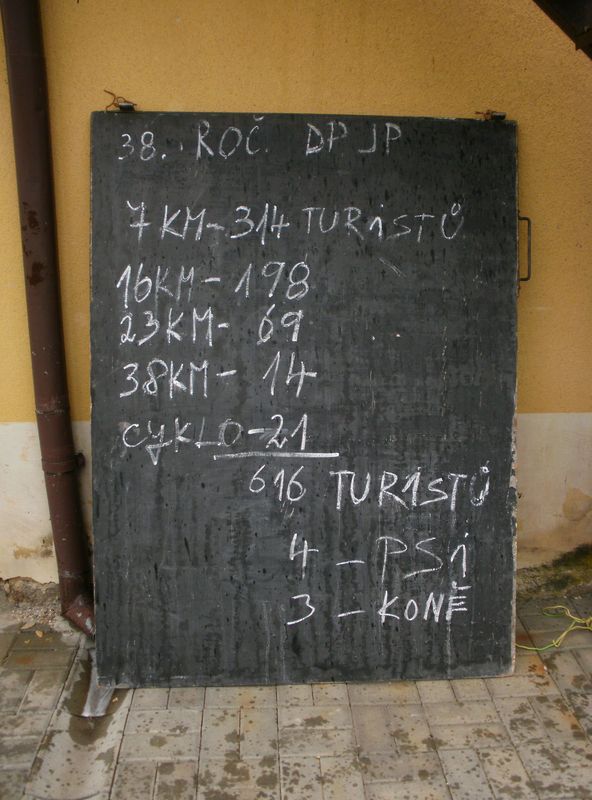 38. ROČ. DPJP
7KM-314 TURiSTŮ
16KM-198
23KM- 69
38KM- 14
CYKLO-21
616 TURISTŮ
4 - PSi
3 - KONĚ